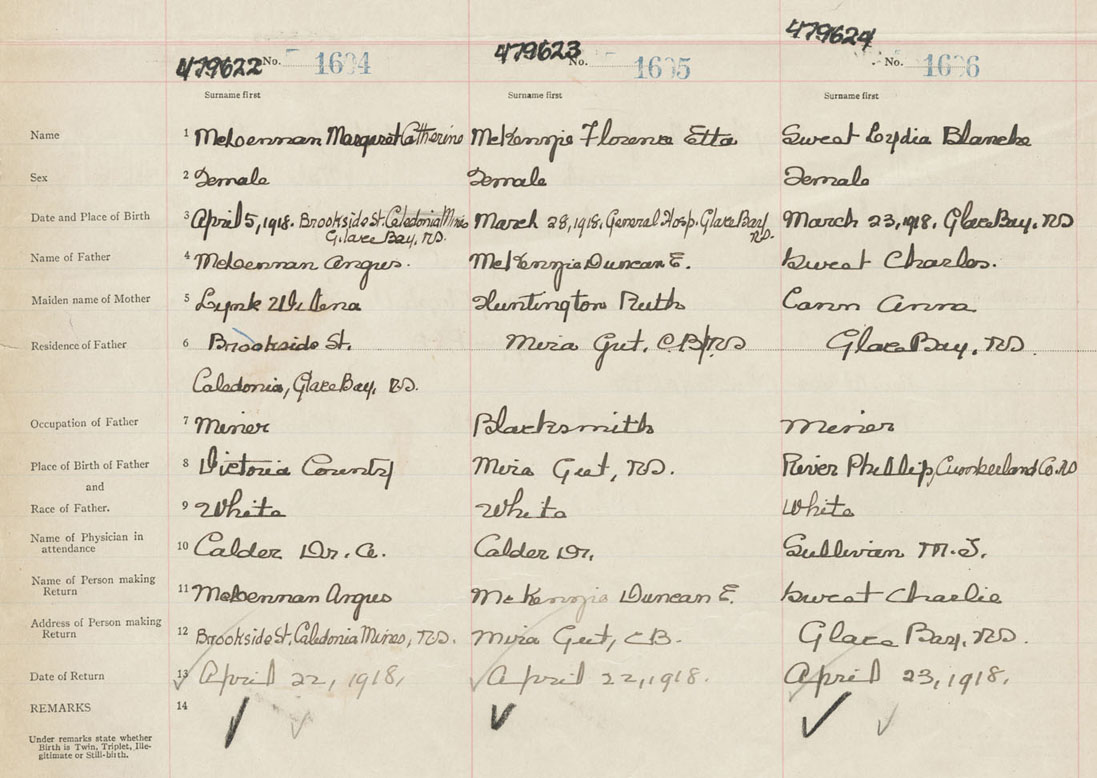 479622 479623 479624
No. 1694 No. 1695 No. 1696
Surname first Surname first Surname first
Name 1 McLennan Margaret Catherine McKenzie Florence Etta Sweat Loydia Blanche
Sex 2 Female Female Female
Date and Place of Birth 3 April 5, 1918. Brookside St. Caledonia Mines March 28, 1918. General Hosp. Glace Bay March 23, 1918. Glace Bay, NS
Glace Bay, NS. NS.
Name of Father 4 McLennan Angus. McKenzie Duncan E. Sweat Charles.
Maiden name of Mother 5 Lynk Huntington Ruth Cann Anna
Residence of Father 6 Brookside St. Mira Gut, C.B. NS Glace Bay, NS.
Caledonia, Glace Bay, NS.
Occupation of Father 7 Miner Blacksmith Miner
Place of Birth of Father 8 Victoria County Mira Gut, NS. River Phillip, Cumberland Co. NS
and
Race of Father. 9 White White White
Name of Physician in attendance 10 Calder Dr. A. Calder Dr. Sullivan M. J.
Name of Person making Return 11 McLennan Angus McKenzie Duncan E. Sweat Charlie
Address of Person making Return 12 Brookside St, Caledonia Mines, NS. Mira Gut, CB. Glace Bay, NS.
Date of Return 13 April 22, 1918. April 22, 1918. April 23, 1918.
REMARKS 14
Under remarks state whether
Birth is Twin, Triplet, Ille-
gitimate or Still-birth.